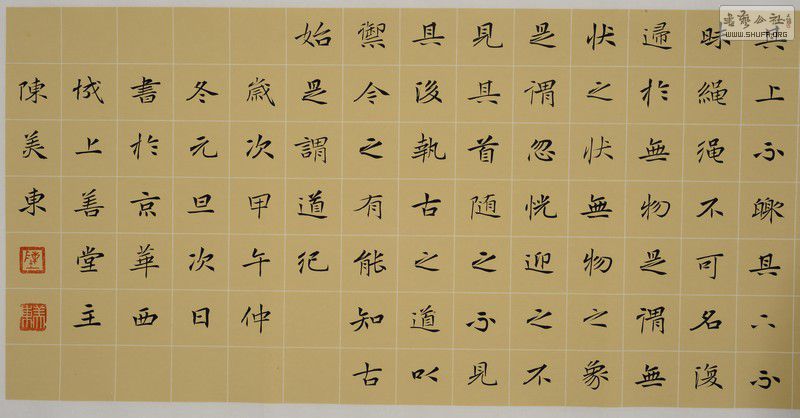 其上不皦其下不
昧繩繩不可名復
歸於無物是謂無
狀之狀無物之象
是謂忽恍迎之不
見其首随之不見
其後執古之道以
禦今之有能知古
始是謂道紀
歲次甲午仲
冬元旦次日
書於京華西
城上善堂主
陳美東
陳
美東
書藝公社
WWW.SHUFA.ORG